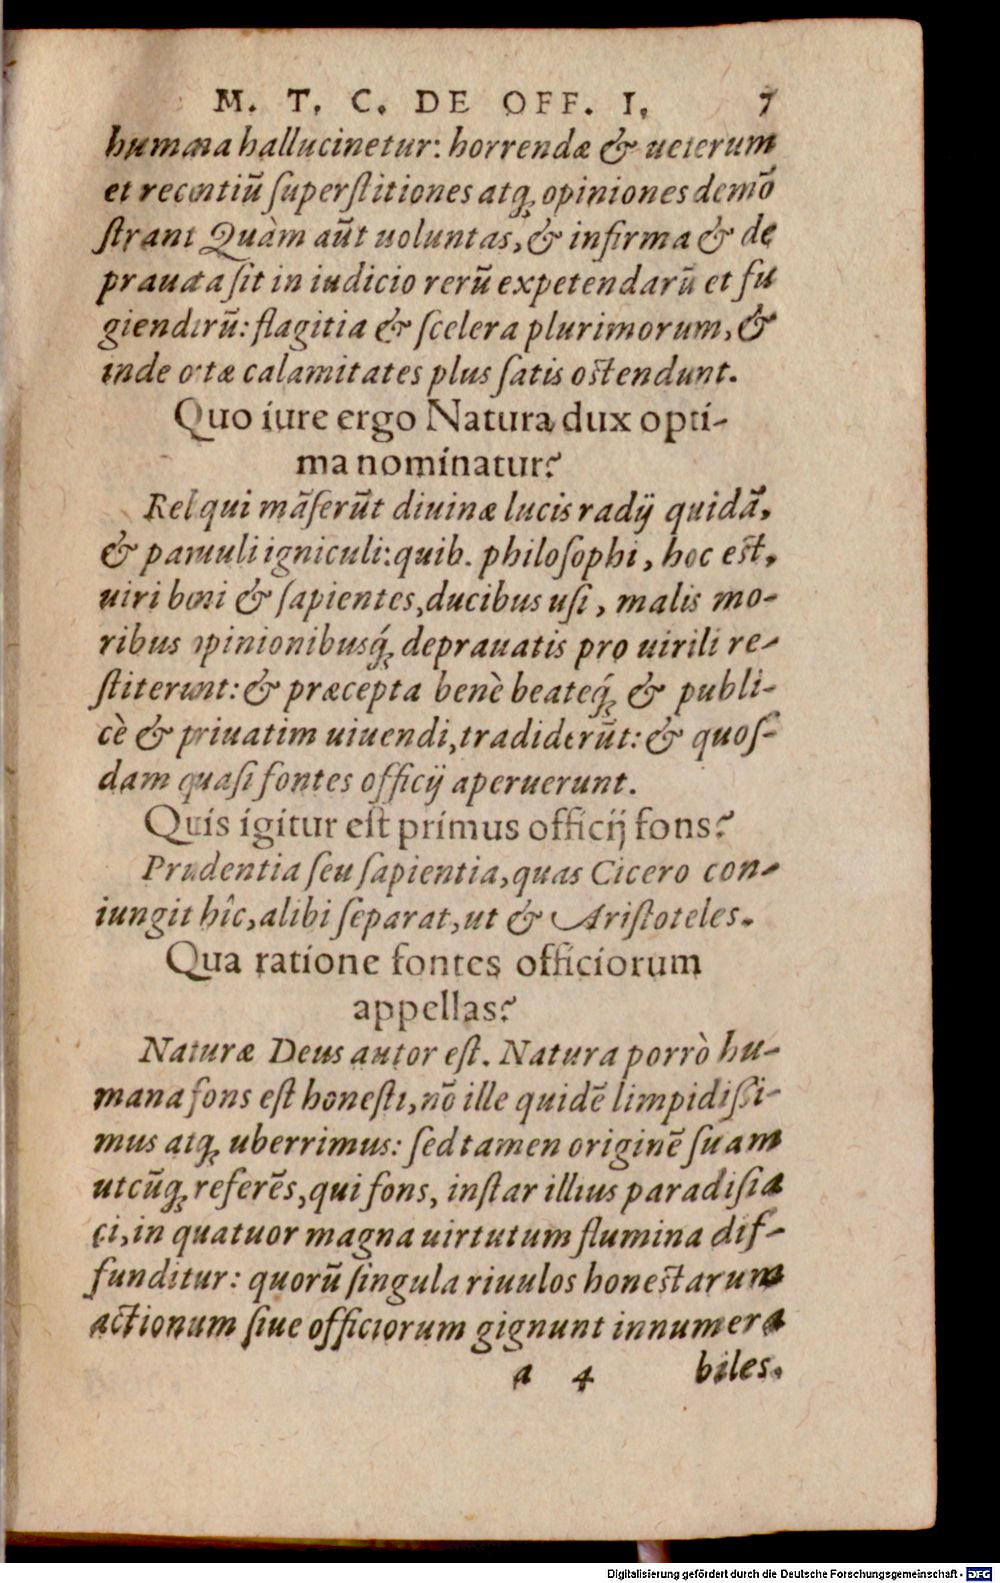 M. T. C. DE OFF. I. 7
humana hallucinetur: horrendæ & ueterum
et recentiū ſuperſtitiones atq; opiniones demō
ſtrant Quàm aūt uoluntas, & infirma & de
prauata ſit in iudicio rerū expetendarū et fu
giendarū: flagitia & ſcelera plurimorum, &
inde ortæ calamitates plus ſatis oſtendunt.
Quo iure ergo Natura dux opti-
ma nominatur?
Reliqui māſerūt diuinæ lucis radij quidā,
& paruuli igniculi: quib. philoſophi, hoc eſt,
uiri boni & ſapientes, ducibus uſi, malis mo-
ribus opinionibusq́; deprauatis pro uirili re-
ſtiterunt: & præcepta benè beateq́; & publi-
cè & priuatim uiuendi, tradiderūt: & quoſ-
dam quaſi fontes officij aperuerunt.
Quis igitur eſt primus officij fons?
Prudentia ſeu ſapientia, quas Cicero con-
iungit hîc, alibi ſeparat, ut & Ariſtoteles.
Qua ratione fontes officiorum
appellas?
Naturæ Deus autor eſt. Natura porrò hu-
mana fons eſt honeſti, nō ille quidē limpidiſſi-
mus atq; uberrimus: ſed tamen originē ſuam
utcūq; referēs, qui fons, inſtar illius paradiſia
ci, in quatuor magna uirtutum flumina dif-
funditur: quorū ſingula riuulos honeſtarum
actionum ſiue officiorum gignunt innumera
a 4 biles.
Digitalisierung gefördert durch die Deutsche Forschungsgemeinschaft - DFG